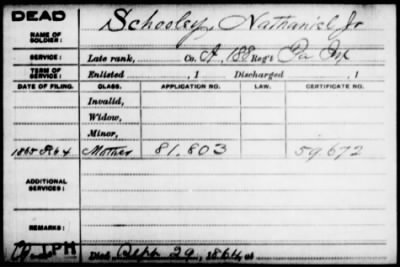 DEAD
NAME OF SOLDIER: Schooley, Nathaniel Jr
SERVICE: Late rank, Co. A, 188 Reg't Pa Inf
TERM OF SERVICE: Enlisted , 1 Discharged , 1
DATE OF FILING. CLASS. APPLICATION NO. LAW. CERTIFICATE NO.
Invalid,
Widow,
Minor,
1865 Feb 4 Mother 81.803 59.672
ADDITIONAL SERVICES:
REMARKS:
IPH Died Sept. 29, 1864, at